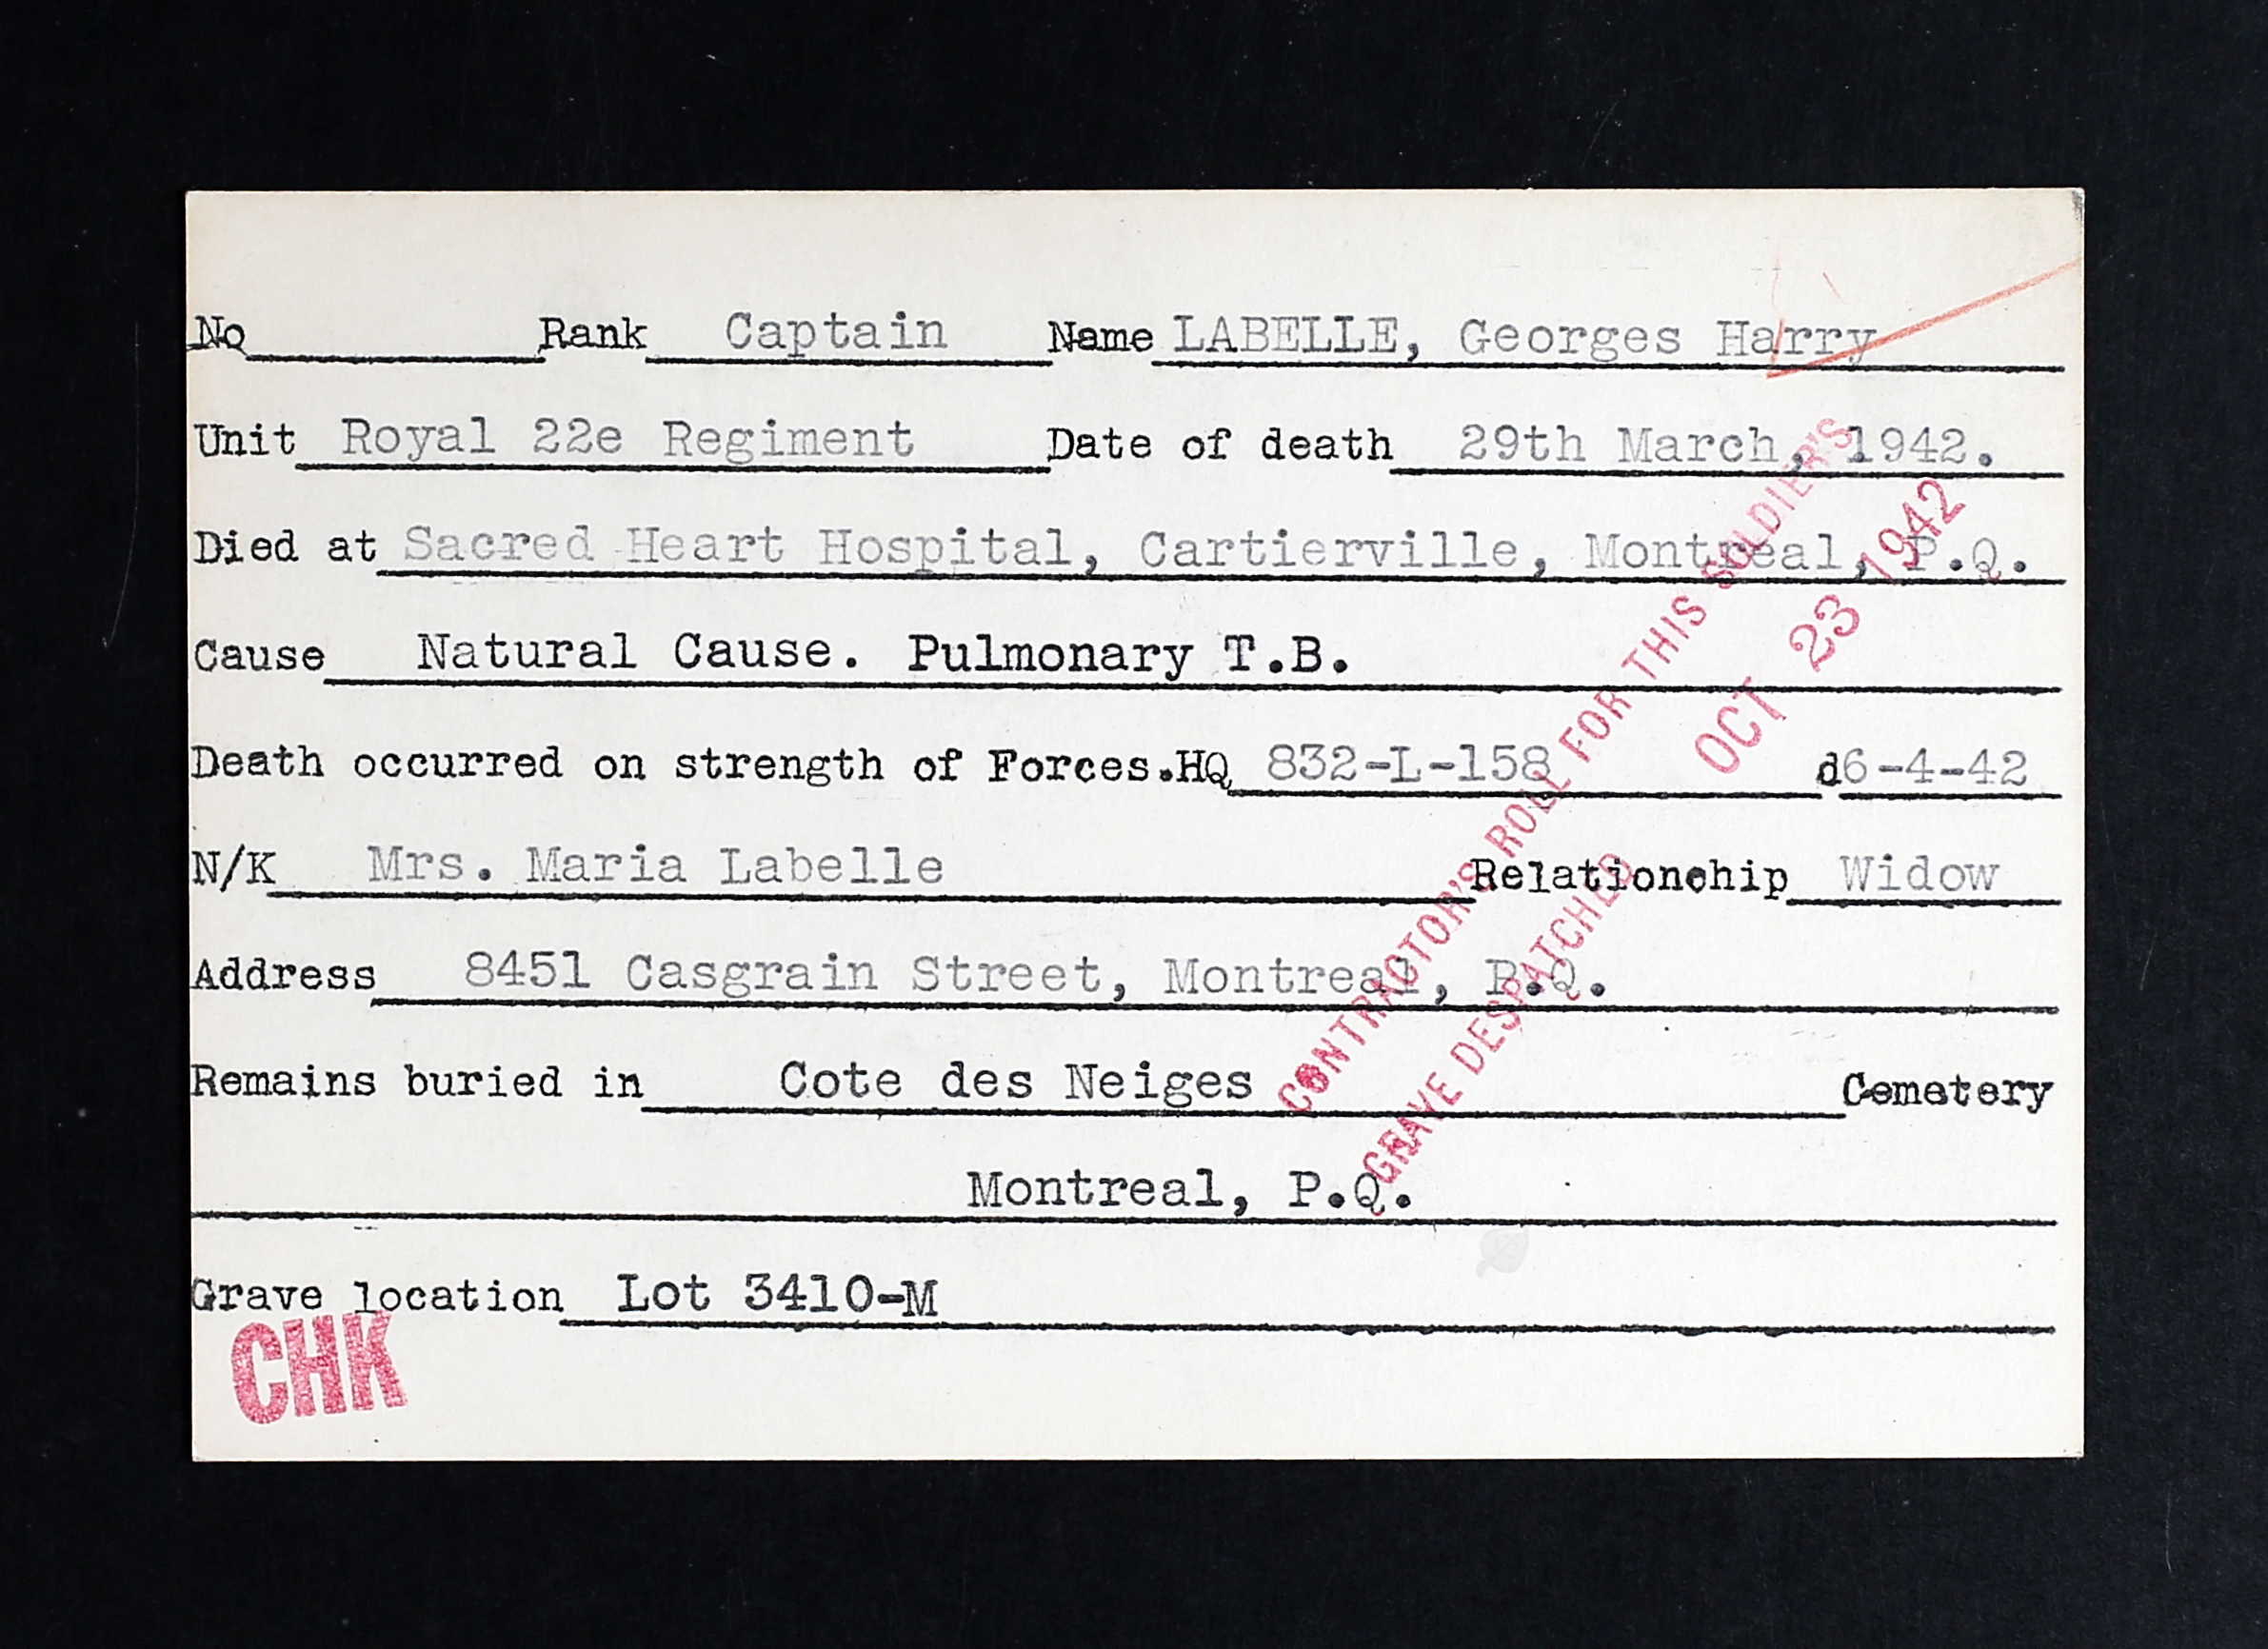 No Rank Captain Name LABELLE, Georges Harry
Unit Royal 22e Regiment Date of death 29th March, 1942.
Died at Sacred Heart Hospital, Cartierville, Montreal, P.Q.
Cause Natural Cause. Pulmonary T.B.
Death occurred on strength of Forces.HQ 832-L-158 d6-4-42
N/K Mrs. Maria Labelle Relationship Widow
Address 8451 Casgrain Street, Montreal, P.Q.
Remains buried in Cote des Neiges Cemetery
Montreal, P.Q.
Grave location Lot 3410-M
CHK
CONTRACTOR'S ROLL FOR THIS SOLDIER'S
GRAVE DESPATCHED OCT 23 1942